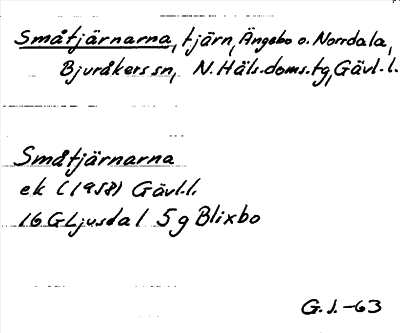 Småtjärnarna, tjärn, Ängebo o. Norrdala,
Bjuråkers sn, N. Häls. doms. tg, Gävl. l.
Småtjärnarna
ek (1958) Gävl. l.
16 G Ljusdal 5 g Blixbo
G. J. -63